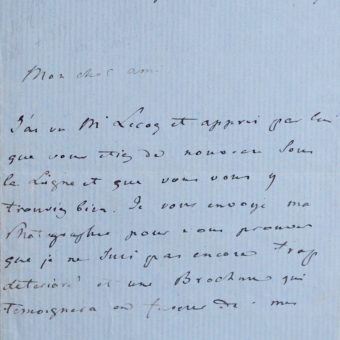 Mon cher ami
J'ai vu Mr Lecoq et appris par lui
que vous étiez de nouveau sous
la Ligne et que vous vous y
trouviez bien. Je vous envoye ma
Photographie pour vous prouver
que je ne suis pas encore trop
détérioré et une Brochure qui
témoignera en faveur de mes